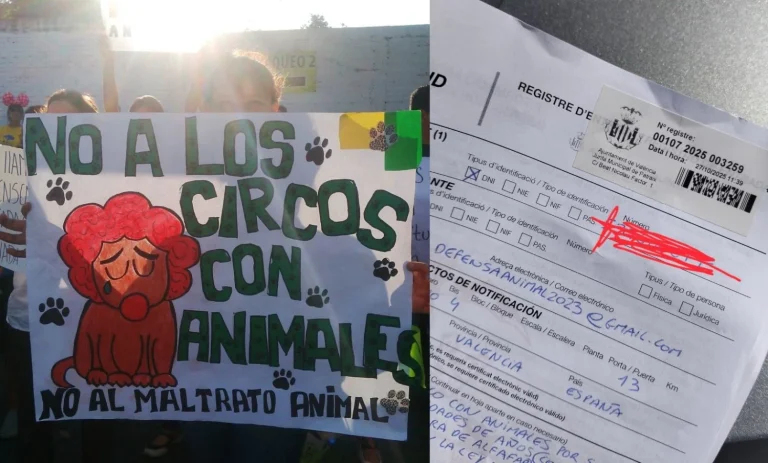 NO A LOS
CIRCOS
CON
ANIMALES
NO AL MALTRATO ANIMAL
UD
REGISTRE D'E
Nº registre:
00107 2025 003259
Data i hora:
27/10/2025 11:39
Ajuntament de Valencia
Junta Municipal de Patraix
C/ Beat Nicolau Factor 1
(1)
Tipus d'identificació / Tipo de identificación
Número
DNI
NIE
NIF
PAS
ANTE
s d'identificació / Tipo de identificación
Número
DNI
NIE
NIF
PAS
Tipus / Tipo de persona
Física
Jurídica
Adreça electrónica / Correo electrónico
DEFENSAANIMAL2023@GMAIL.COM
CTOS DE NOTIFICACIÓN
Bis
Bloc / Bloque
Escala / Escalera
Planta
Porta / Puerta
Km
4
13
Província / Provincia
VALENCIA
País
ESPAÑA
es requerix certificat electrònic vàlid)
se requiere certificado electrónico válido)
Continuar en hoja aparte en caso necesario)
CON ANIMALES POR
DADES DE AÑOS
RA DE ALFAFA
LA LEY